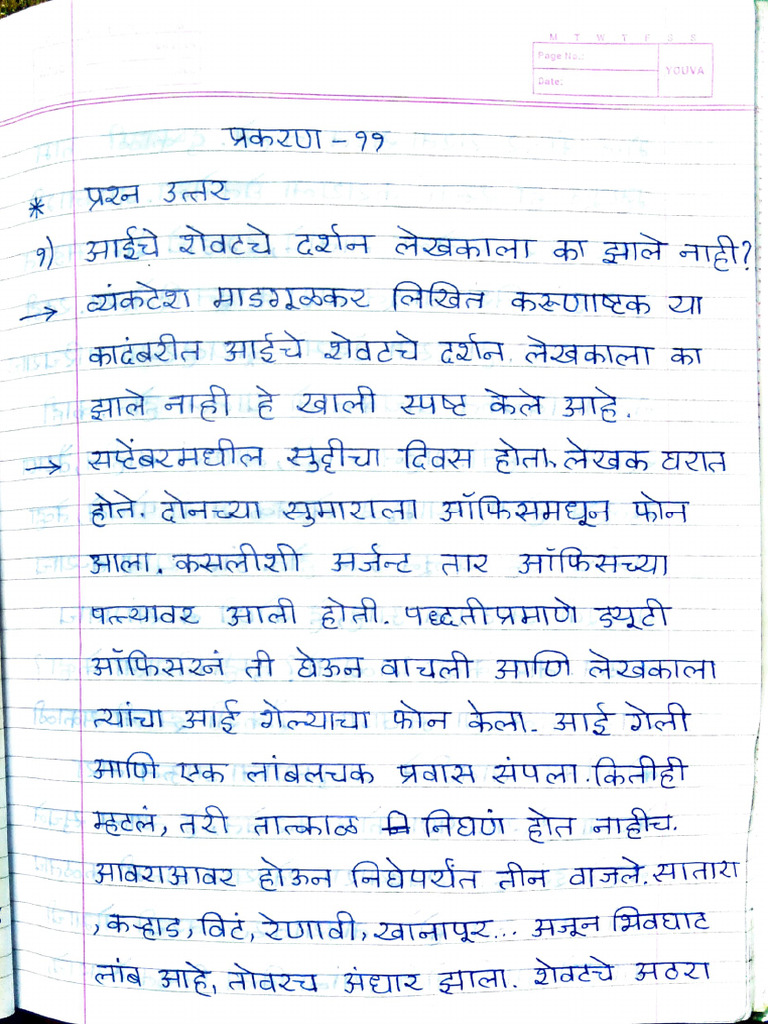 M T W T F S S
Page No.:
Date:
YOUVA
प्रकरण - ११
* प्रश्न उत्तर
१) आईचे शेवटचे दर्शन लेखकाला का झाले नाही?
→ व्यंकटेश माडगूळकर लिखित करूणाष्टक या
कादंबरीत आईचे शेवटचे दर्शन लेखकाला का
झाले नाही हे खाली स्पष्ट केले आहे.
→ सप्टेंबरमधील सुट्टीचा दिवस होता. लेखक घरात
होते. दोनच्या सुमाराला ऑफिसमधून फोन
आला. कसलीशी अर्जन्ट तार ऑफिसच्या
पत्त्यावर आली होती. पध्दतीप्रमाणे ड्यूटी
ऑफिसरनं ती घेऊन वाचली आणि लेखकाला
त्यांचा आई गेल्याचा फोन केला. आई गेली
आणि एक लांबलचक प्रवास संपला. कितीही
म्हटलं, तरी तात्काळ निघणं होत नाहीच.
आवराआवर होऊन निघेपर्यंत तीन वाजले. सातारा
, कऱ्हाड, विटं, रेणावी, खानापूर... अजून भिवघाट
लांब आहे, तोवरच अंधार झाला. शेवटचे अठरा